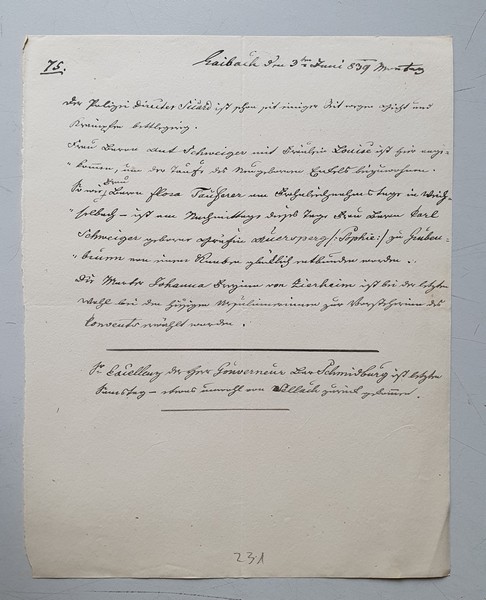 75. Laibach den 3ten Juni 839 Montag
Der Polizei Director Sicard ist schon seit einiger Zeit wegen Gicht und
Krämpfe bettlägerig.
Frau Baron Ant Schweiger mit Fräulein Louise ist hier ange-
kommen, um der Taufe des Neugeborenen Enkels beizuwohnen.
So wie Frau Baron Flora Taufferer am Frohnleichnamstage in Weich-
selbach – ist am Nachmittage dieses Tags Frau Baron Carl
Schweiger geborne Gräfin Auersperg /: Sophie :/ zu
von einem Knaben glücklich entbunden worden.
Die Mater Johanna von Zierheim ist bei der letzten
Wahl bei den hiesigen Ursulinerinnen zur Vorsteherin des
Convents erwählt worden.
Se Excellenz der Herr Gouverneur Bar Schmidburg ist letzten
Samstag – etwas unwohl von zurück gekommen.
231